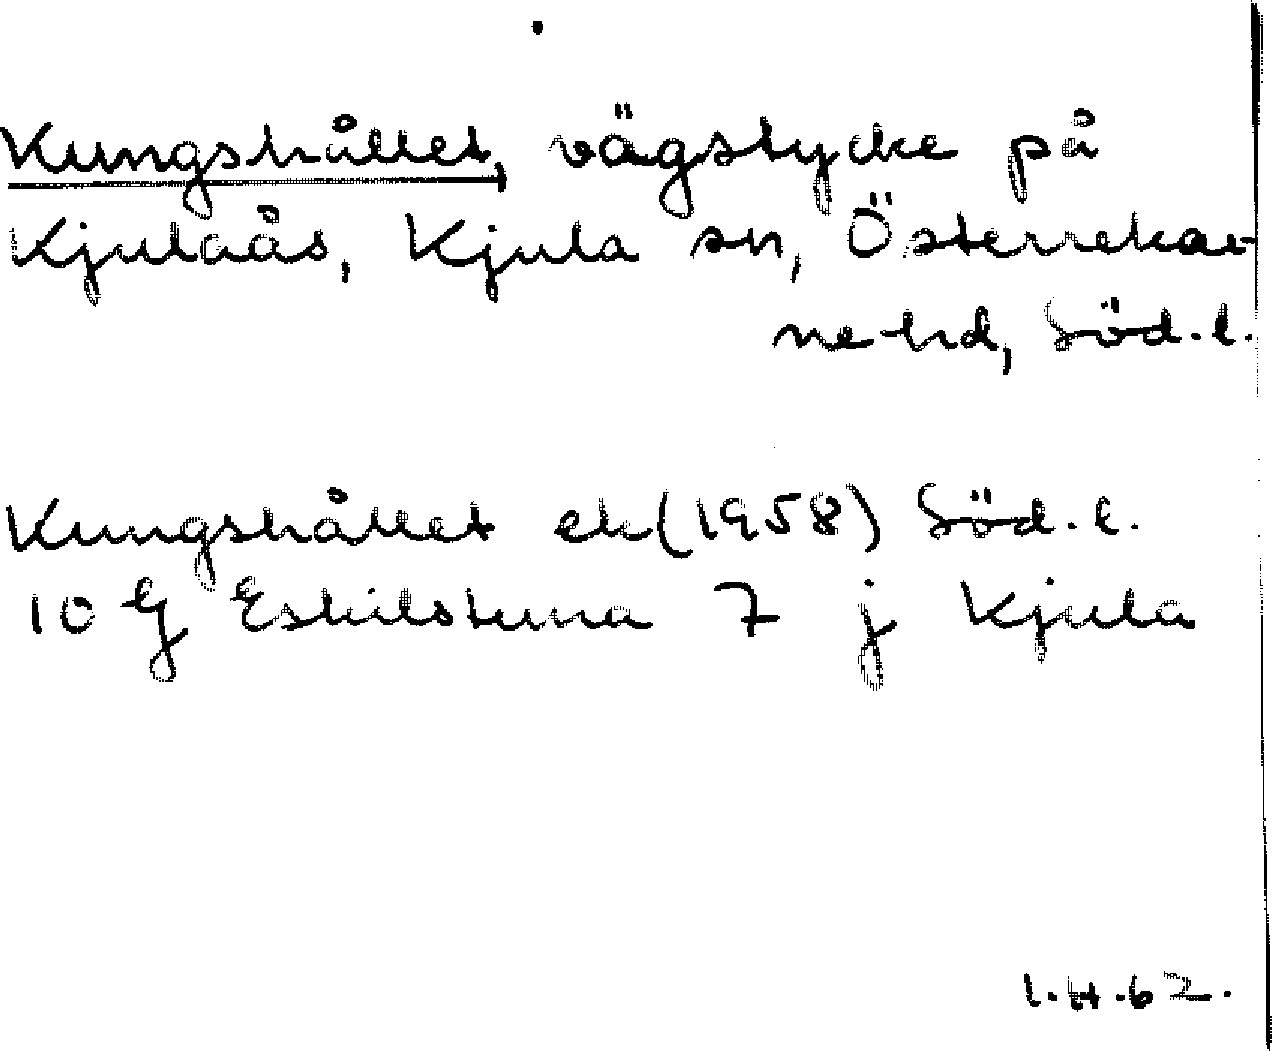 Kungshållet, vägstycke på
Kjulaås, Kjula sn, Österrekar-
ne hd, Söd.l.
Kungshållet ek (1958) Söd.l.
10 G Eskilstuna 7 j Kjula
1.H.62.